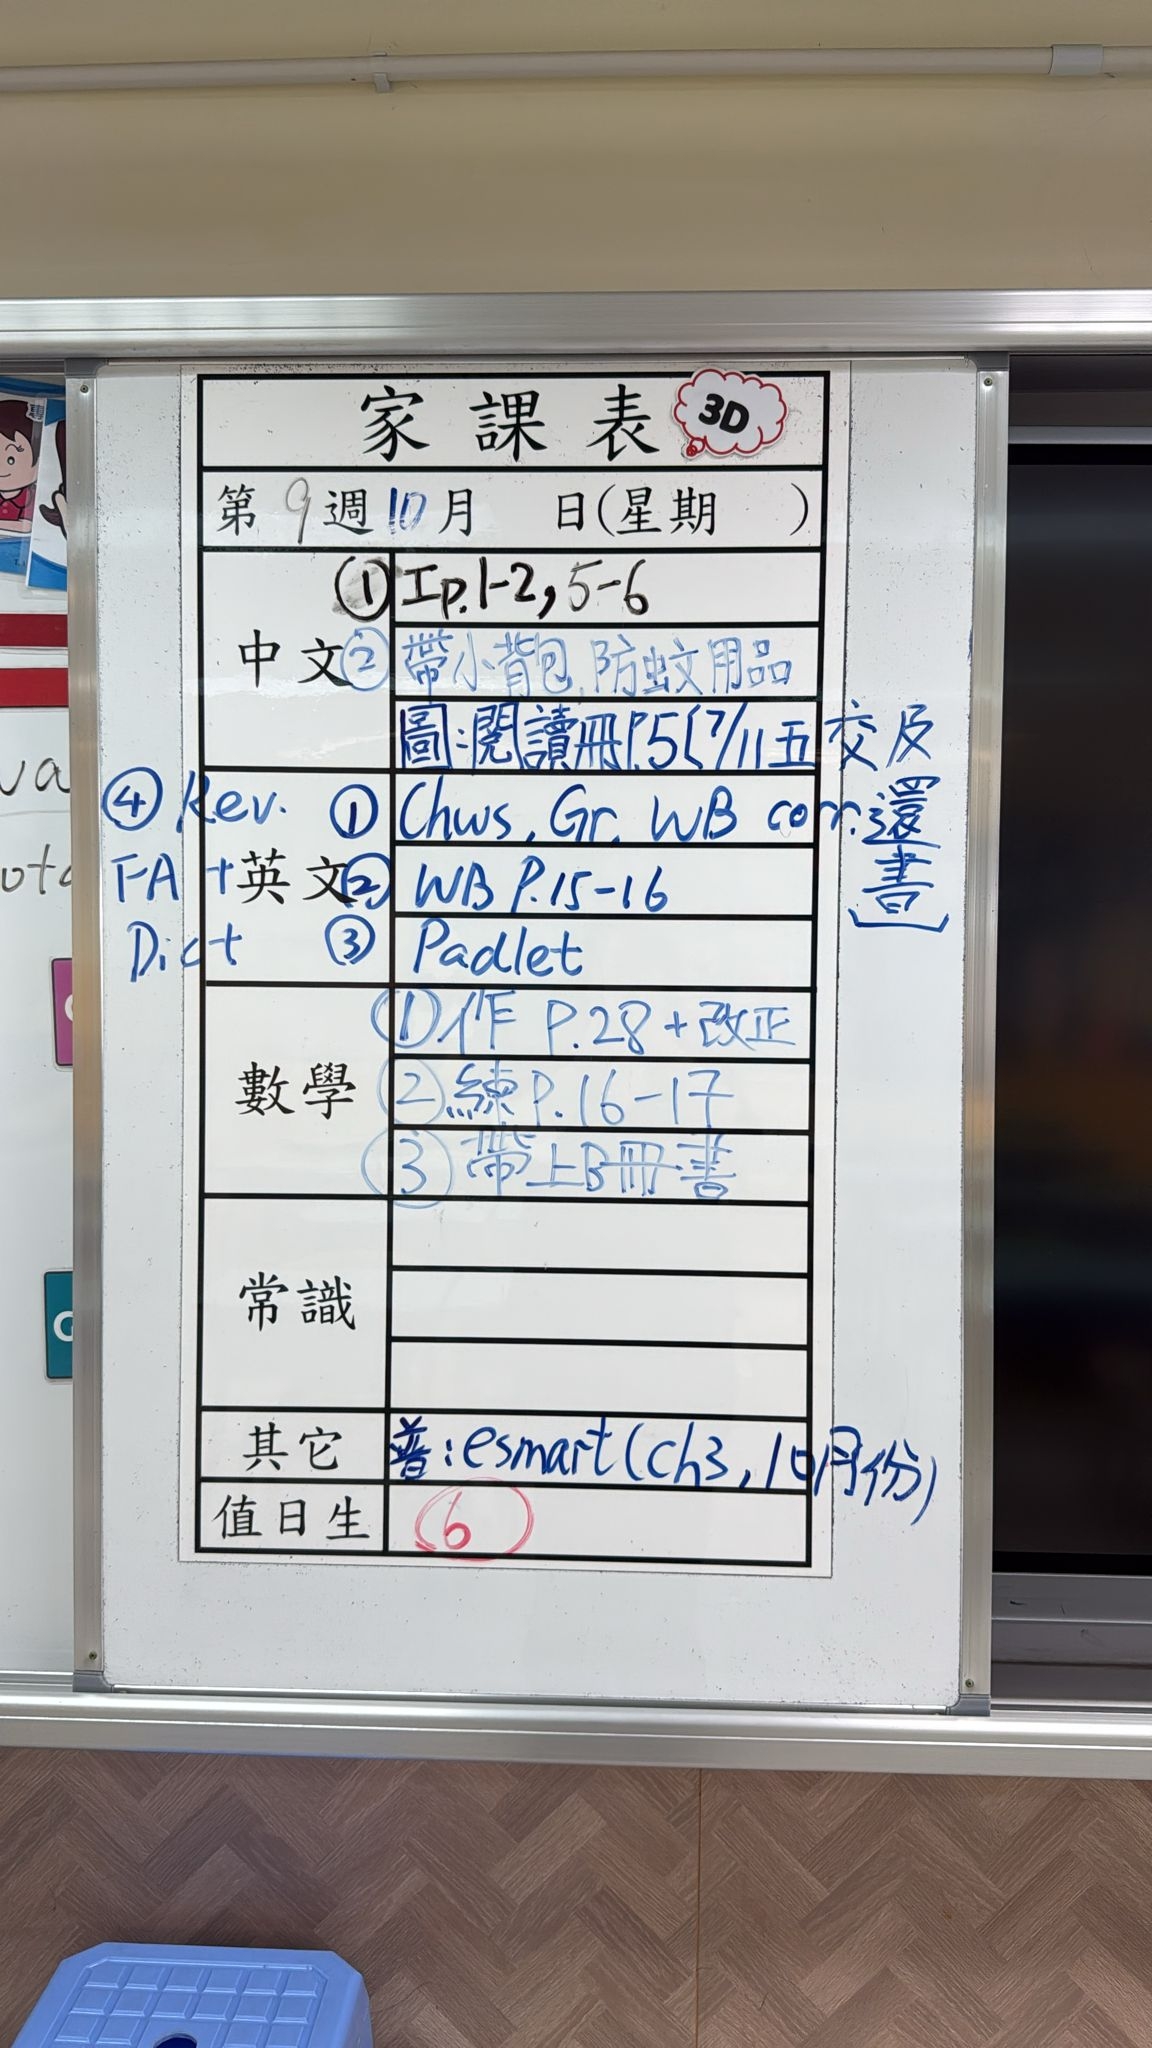 家課表 3D
第9週10月 日(星期 )
中文
① 工p.1-2, 5-6
② 帶小背包, 防蚊用品
圖:閱讀冊P.5〔7/11五交及還書〕
英文
① Chws, Gr. WB corr.
② WB P.15-16
③ Padlet
④ Rev. FA + Dict
數學
① 作 P.28 + 改正
② 練P.16-17
③ 帶上B冊書
常識
其它
普:esmart(ch3, 10月份)
值日生
6